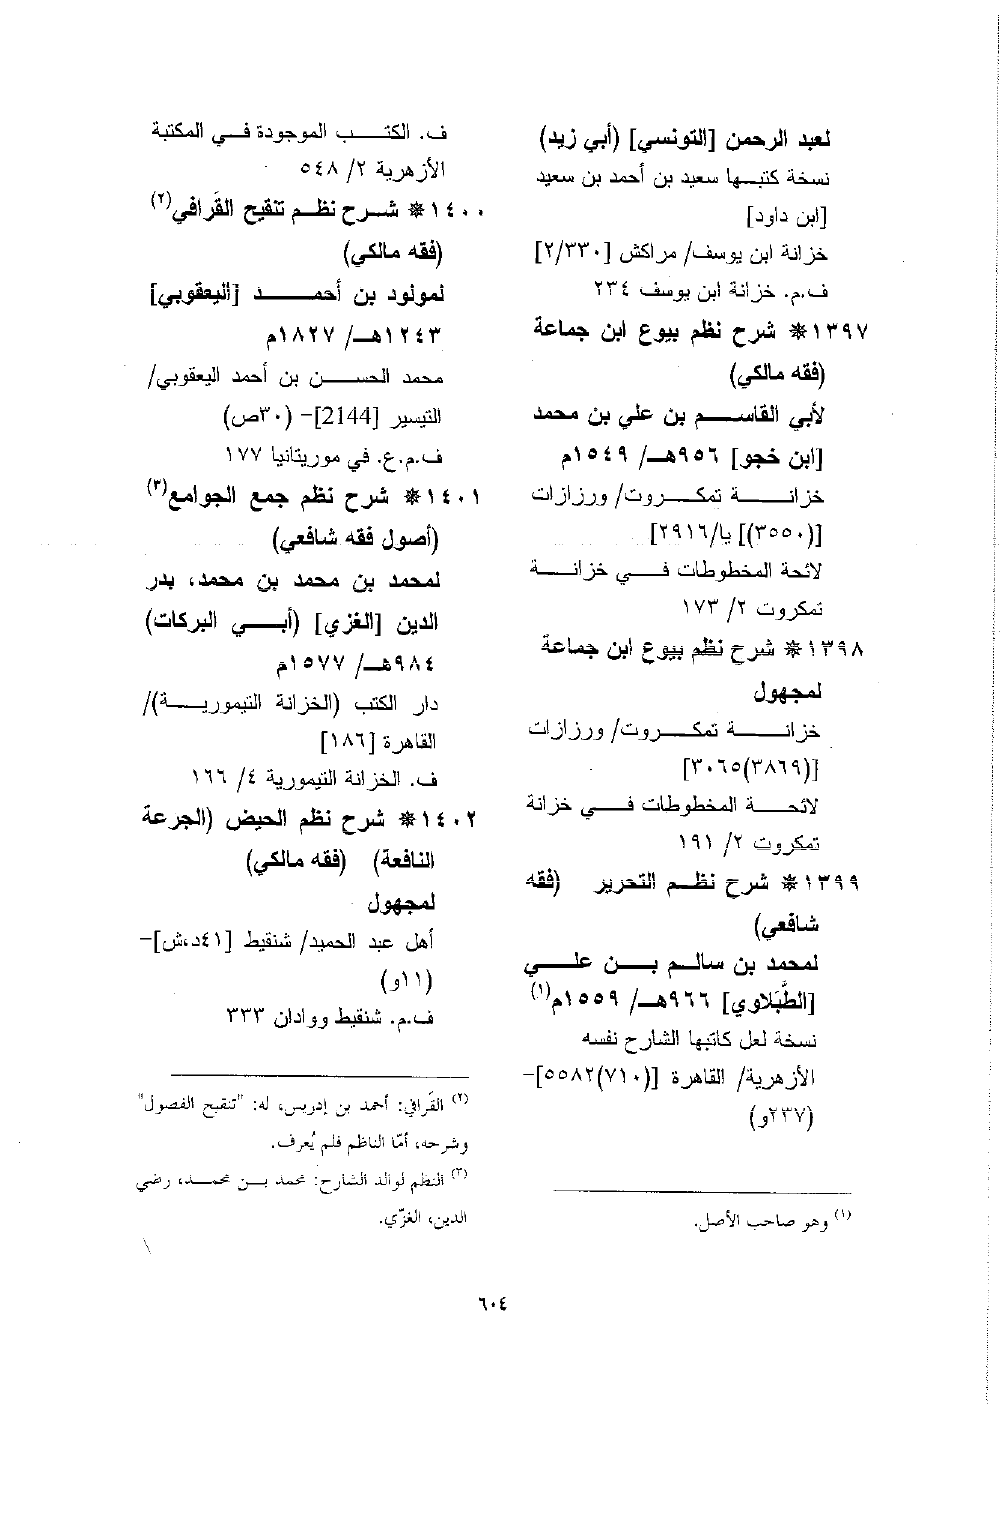 لعبد الرحمن [التونسي] (أبي زيد)
نسخة كتبها سعيد بن أحمد بن سعيد
[ابن داود]
خزانة ابن يوسف/ مراكش [٢/٣٣٠]
ف.م. خزانة ابن يوسف ٢٣٤
١٣٩٧* شرح نظم بيوع ابن جماعة
(فقه مالكي)
لأبي القاسم بن علي بن محمد
[ابن خجو] ٩٥٦هـ/ ١٥٤٩م
خزانة تمكروت/ ورزازات
[(٣٥٥٠)] يا/٢٩١٦]
لائحة المخطوطات في خزانة
تمكروت ٢/ ١٧٣
١٣٩٨* شرح نظم بيوع ابن جماعة
لمجهول
خزانة تمكروت/ ورزازات
[(٣٨٦٩)٣٠٦٥]
لائحة المخطوطات في خزانة
تمكروت ٢/ ١٩١
١٣٩٩* شرح نظم التحرير (فقه
شافعي)
لمحمد بن سالم بن علي
[الطَّبَلاوي] ٩٦٦هـ/ ١٥٥٩م(١)
نسخة لعل كاتبها الشارح نفسه
الأزهرية/ القاهرة [(٧١٠)٥٥٨٢]-
(٢٣٧و)
(١) وهو صاحب الأصل.
ف. الكتب الموجودة في المكتبة
الأزهرية ٢/ ٥٤٨
١٤٠٠* شرح نظم تنقيح القَرافي(٢)
(فقه مالكي)
لمولود بن أحمد [اليعقوبي]
١٢٤٣هـ/ ١٨٢٧م
محمد الحسن بن أحمد اليعقوبي/
التيسير [2144]- (٣٠ص)
ف.م.ع. في موريتانيا ١٧٧
١٤٠١* شرح نظم جمع الجوامع(٣)
(أصول فقه شافعي)
لمحمد بن محمد بن محمد، بدر
الدين [الغزي] (أبي البركات)
٩٨٤هـ/ ١٥٧٧م
دار الكتب (الخزانة التيمورية)/
القاهرة [١٨٦]
ف. الخزانة التيمورية ٤/ ١٦٦
١٤٠٢* شرح نظم الحيض (الجرعة
النافعة) (فقه مالكي)
لمجهول
أهل عبد الحميد/ شنقيط [٤١د،ش]-
(١١و)
ف.م. شنقيط وودان ٣٣٣
(٢) القَرافي: أحمد بن إدريس، له: "تنقيح الفصول"
وشرحه، أمّا الناظم فلم يُعرف.
(٣) النظم لوالد الشارح: محمد بن محمد، رضي
الدين، الغزّي.
٦٠٤